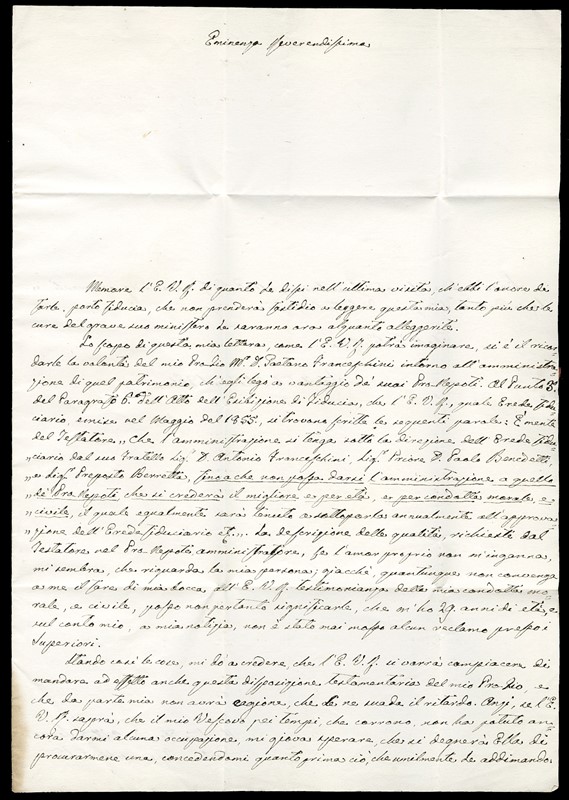 Eminenza Reverendissima
Memore l'E. V. R. di quanto Le dissi nell'ultima visita, ch'ebbi l'onore di
farle, porto fiducia, che non prenderà fastidio a leggere questa mia, tanto più che le
cure del grave suo ministero Le saranno ora alquanto alleggerite.
Lo scopo di questa mia lettera, come l'E. V. R. potrà imaginare, si è il ricor-
darle la volontà del mio Prozio Mr. D. Gaetano Franceschini intorno all'amministra-
zione di quel patrimonio, ch'egli legò a vantaggio de' suoi Pro Nepoti. Al Punto 3.
del Paragrafo 6° dell'Atto dell'Esibizione di Fiducia, che l'E. V. R., quale Erede fidu-
ciario, emise nel Maggio del 1855, si trovano scritte le seguenti parole: È mente
del Testatore „ che l'amministrazione si tenga sotto la direzione dell'Erede fidu-
„ ciario dal suo fratello Sig. D. Antonio Franceschini, Sig. Priore D. Paolo Benedetti,
„ e Sig. Preposto Berretta, fino a che non possa darsi l'amministrazione a quello
„ de' Pro Nepoti che si crederà il migliore e per età, e per condotta morale, e
„ civile, il quale egualmente sarà tenuto a sottoporla annualmente all'approva-
„ zione dell'Erede fiduciario ec. „. La descrizione delle qualità, richieste dal
Testatore nel Pro Nepote amministratore, se l'amor proprio non m'inganna,
mi sembra, che riguarda la mia persona; giacchè, quantunque non convenga
a me il fare di mia bocca, all'E. V. R. testimonianza della mia condotta mo-
rale, e civile, posso non pertanto significarle, che m'ho 29. anni di età, e
sul conto mio, a mia notizia, non è stato mai mosso alcun reclamo presso i
Superiori.
Stando così le cose, mi do a credere, che l'E. V. R. si vorrà compiacere di
mandare ad effetto anche questa disposizione testamentaria del mio Prozio, e
che da parte mia non avrà cagione, che Le ne suada il ritardo. Anzi, se l'E.
V. R. saprà, che il mio Vescovo pei tempi, che corrono, non ha potuto an-
cora darmi alcuna occupazione, mi giova sperare, che si degnerà Ella di
procurarmene una, concedendomi quanto prima ciò, che umilmente Le addimando.